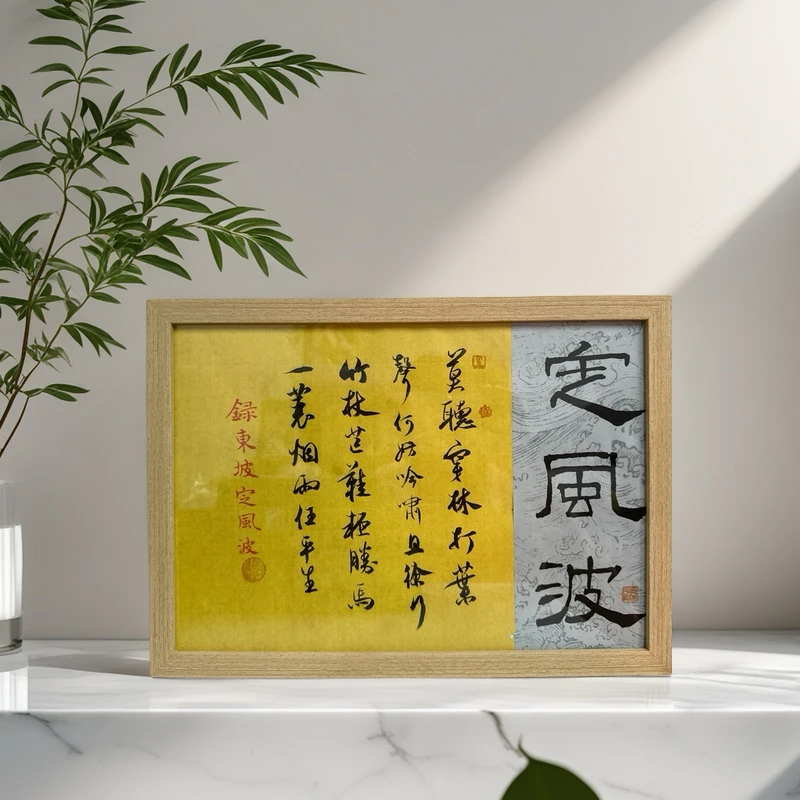 定風波
莫聽穿林打葉
聲何妨吟嘯且徐行
竹杖芒鞋輕勝馬
一蓑烟雨任平生
録東坡定風波